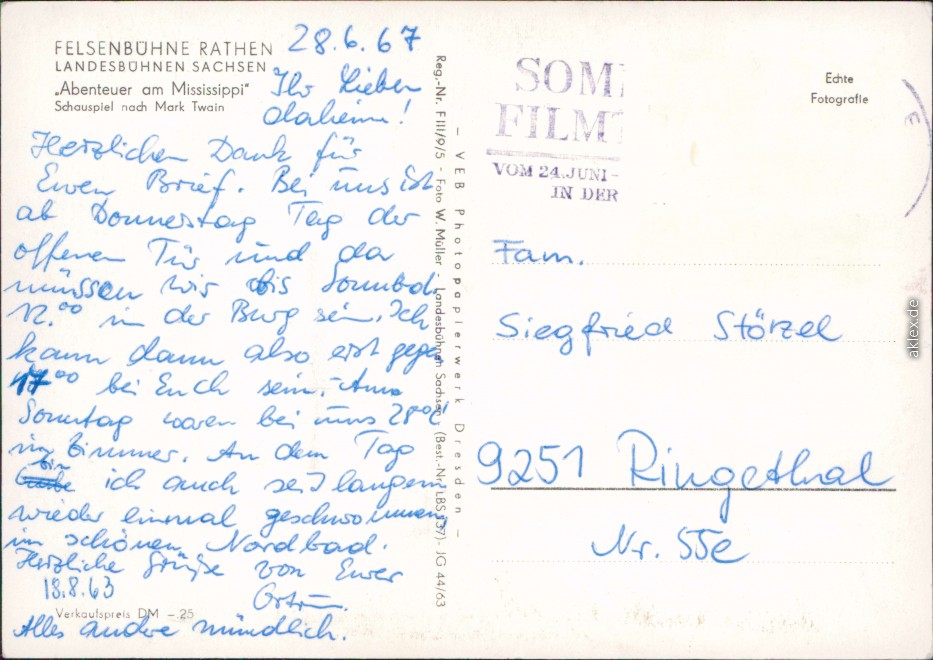 FELSENBÜHNE RATHEN
LANDESBÜHNEN SACHSEN
„Abenteuer am Mississippi"
Schauspiel nach Mark Twain
28.6.67
Ihr Lieben
daheim!
Herzlichen Dank für
Euren Brief. Bei uns ist
ab Donnerstag Tag der
offenen Tür und da
müssen wir bis Sonnabd.
12.00 in der Burg sein. Ich
kann dann also erst gegen
17.00 bei Euch sein. Am
Sonntag waren bei uns 28°C
im Zimmer. An dem Tag
bin
ich auch seit langem
wieder einmal geschwommen
im schönen Nordbad.
Herzliche Grüße von Eurer
18.8.63
Verkaufspreis DM –.25
Alles andre mündlich.
Reg.-Nr. F III/9/5 - Foto W. Müller - Landesbühnen Sachsen (Best.-Nr. LBS 37) - JG 44/63
– VEB Photopapierwerk Dresden –
SOM
FILMT
VOM 24. JUNI -
IN DER
Echte
Fotografie
E
Fam.
Siegfried Störzel
9251 Ringethal
Nr. 55e
aklex.de